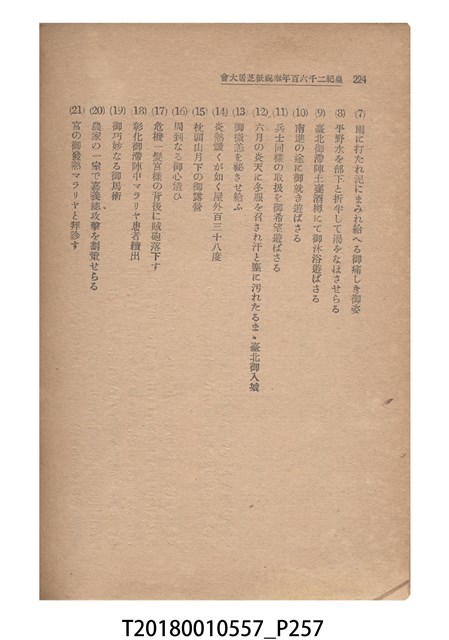 224　皇紀二千六百年奉祝紙芝居大會
(7) 雨に打たれ泥にまみれ給へる御痛しき御姿
(8) 平野水を部下と折半して渇をなほさせらる
(9) 臺北御滯陣土竈酒樽にて御沐浴遊ばさる
(10) 南進の途に御就き遊ばさる
(11) 兵士同樣の取扱を御希望遊ばさる
(12) 六月の炎天に冬服を召され汗と塵に汚れたるまゝ臺北御入城
(13) 御微恙を祕させ給ふ
(14) 炎熱燬くが如く屋外百三十八度
(15) 枕頭山月下の御露營
(16) 周到なる御心遣ひ
(17) 危機一髮宮樣の背後に賊砲落下す
(18) 彰化御滯陣中マラリヤ患者續出
(19) 御巧妙なる御馬術
(20) 農家の一室で嘉義總攻擊を劃策せらる
(21) 宮の御發熱マラリヤと拜診す
T20180010557_P257